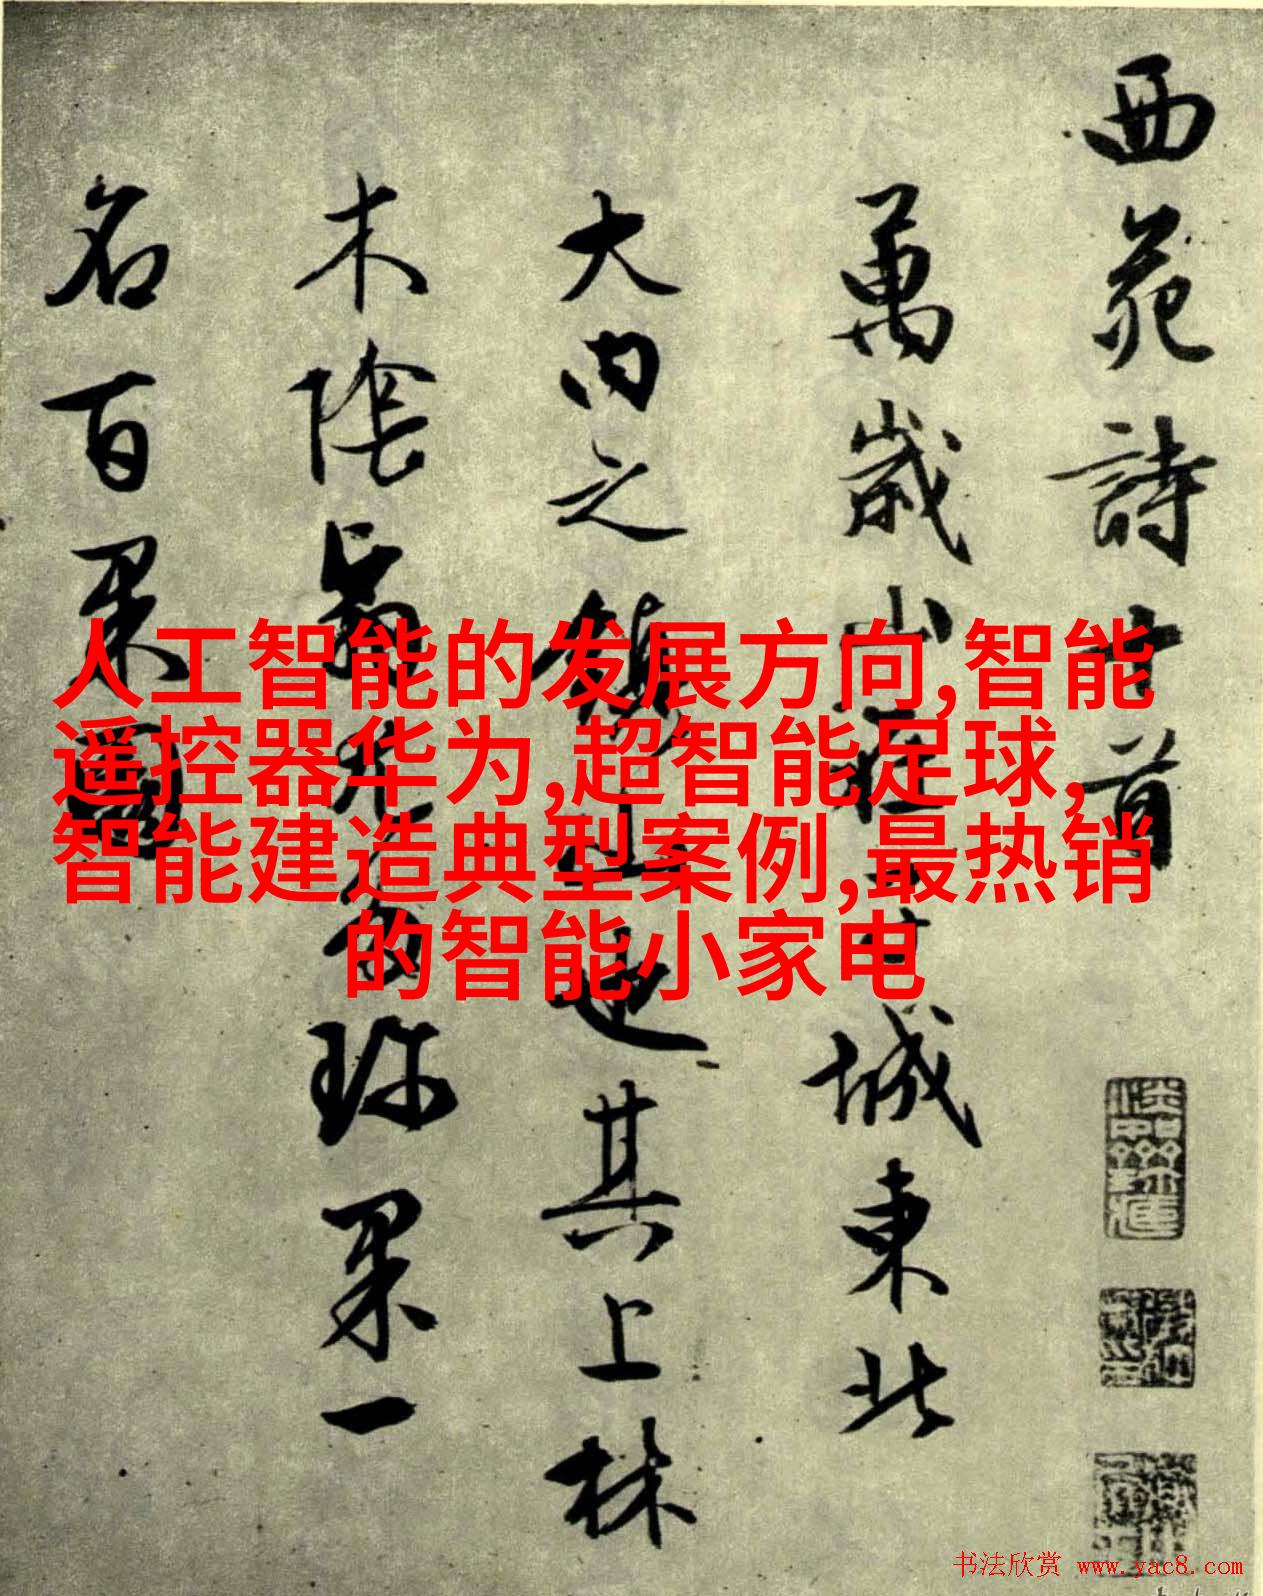 西苑詩十首
萬歲山在子城東北
大内之鎮山也其上林
木陰翳尤多珍果一
名百果園
人工智能的发展方向,智能
遥控器华为,超智能足球,
智能建造典型案例,最热销
的智能小家电
书法欣赏 www.yac8.com